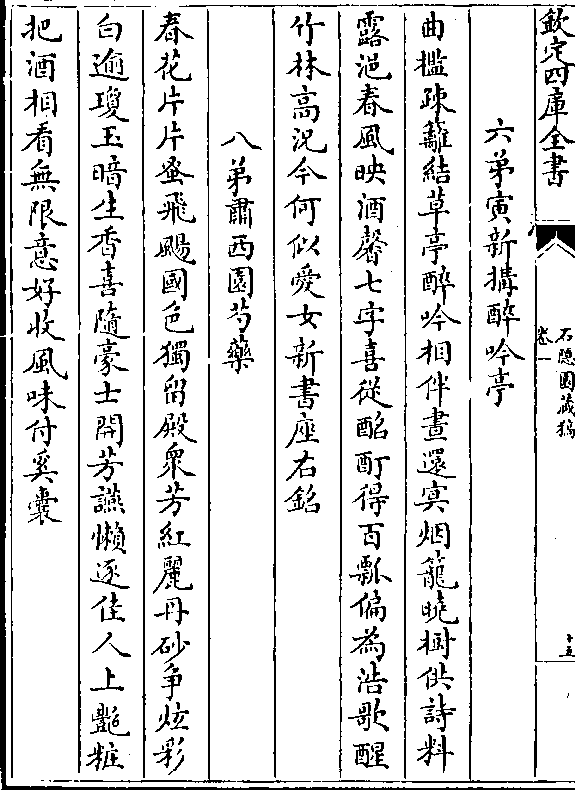 欽定四庫全書
石隱園藏稿
卷一
十五
六弟寅新搆醉吟亭
曲檻疎籬結草亭醉吟相伴晝還㝠烟籠曉樹供詩料
露浥春風映酒馨七字喜從酩酊得百瓢偏為浩歌醒
竹林高況今何似愛女新書座右銘
八弟肅西園芍藥
春花片片蚤飛颺國色獨留殿衆芳紅麗丹砂争炫彩
白逾瓊玉暗生香喜隨豪士開芳讌懶逐佳人上艷粧
把酒相看無限意好收風味付奚囊